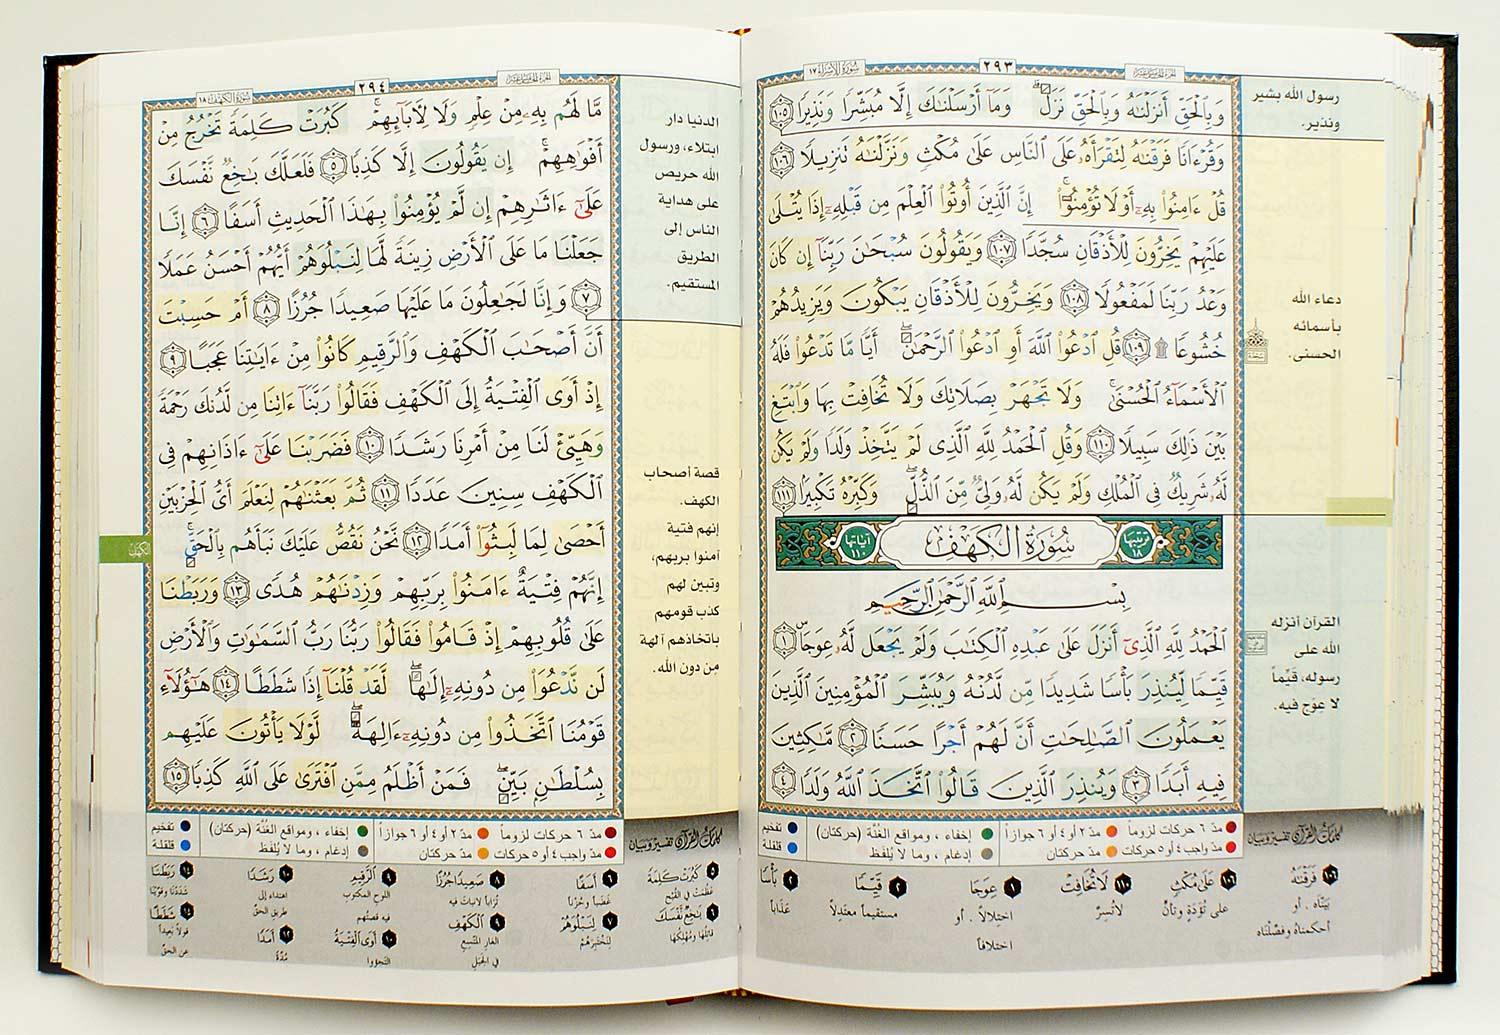 سورة الإسراء ١٧
٢٩٣
الجزء الخامس عشر
وَبِالْحَقِّ أَنزَلْنَاهُ وَبِالْحَقِّ نَزَلَ وَمَا أَرْسَلْنَاكَ إِلَّا مُبَشِّرًا وَنَذِيرًا ١٠٥
وَقُرْءَانًا فَرَقْنَاهُ لِتَقْرَأَهُ عَلَى النَّاسِ عَلَىٰ مُكْثٍ وَنَزَّلْنَاهُ تَنزِيلًا ١٠٦
قُلْ ءَامِنُوا بِهِ أَوْ لَا تُؤْمِنُوا إِنَّ الَّذِينَ أُوتُوا الْعِلْمَ مِن قَبْلِهِ إِذَا يُتْلَىٰ
عَلَيْهِمْ يَخِرُّونَ لِلْأَذْقَانِ سُجَّدًا ١٠٧ وَيَقُولُونَ سُبْحَانَ رَبِّنَا إِن كَانَ
وَعْدُ رَبِّنَا لَمَفْعُولًا ١٠٨ وَيَخِرُّونَ لِلْأَذْقَانِ يَبْكُونَ وَيَزِيدُهُمْ
خُشُوعًا ۩ ١٠٩ قُلِ ادْعُوا اللَّهَ أَوِ ادْعُوا الرَّحْمَٰنَ أَيًّا مَّا تَدْعُوا فَلَهُ
الْأَسْمَاءُ الْحُسْنَىٰ وَلَا تَجْهَرْ بِصَلَاتِكَ وَلَا تُخَافِتْ بِهَا وَابْتَغِ
بَيْنَ ذَٰلِكَ سَبِيلًا ١١٠ وَقُلِ الْحَمْدُ لِلَّهِ الَّذِي لَمْ يَتَّخِذْ وَلَدًا وَلَمْ يَكُن
لَّهُ شَرِيكٌ فِي الْمُلْكِ وَلَمْ يَكُن لَّهُ وَلِيٌّ مِّنَ الذُّلِّ وَكَبِّرْهُ تَكْبِيرًا ١١١
ترتيبها ١٨
سُورَةُ الْكَهْفِ
آياتها ١١٠
بِسْمِ اللَّهِ الرَّحْمَٰنِ الرَّحِيمِ
الْحَمْدُ لِلَّهِ الَّذِي أَنزَلَ عَلَىٰ عَبْدِهِ الْكِتَابَ وَلَمْ يَجْعَل لَّهُ عِوَجًا ١
قَيِّمًا لِّيُنذِرَ بَأْسًا شَدِيدًا مِّن لَّدُنْهُ وَيُبَشِّرَ الْمُؤْمِنِينَ الَّذِينَ
يَعْمَلُونَ الصَّالِحَاتِ أَنَّ لَهُمْ أَجْرًا حَسَنًا ٢ مَّاكِثِينَ
فِيهِ أَبَدًا ٣ وَيُنذِرَ الَّذِينَ قَالُوا اتَّخَذَ اللَّهُ وَلَدًا ٤
رسول الله بشير
ونذير.
دعاء الله
بأسمائه
الحسنى.
القرآن أنزله
الله على
رسوله، قيّماً
لا عِوَج فيه.
كلمات القرآن تفسير وبيان
مدّ ٦ حركات لزوماً
مدّ ٢ أو ٤ أو ٦ جوازاً
إخفاء، ومواقع الغُنَّة (حركتان)
تفخيم
مدّ واجب ٤ أو ٥ حركات
مدّ حركتان
إدغام، وما لا يُلفَظ
قلقلة
١٠٦ فَرَقْنَاهُ
بَيّنّاه. أو
أحكمناه وفصّلناه
١٠٦ عَلَىٰ مُكْثٍ
على تُؤَدَةٍ وتأنٍّ
١١٠ لَا تُخَافِتْ
لا تُسِرَّ
١ عِوَجًا
اختلالاً. أو
اختلافاً
٢ قَيِّمًا
مستقيماً معتدلاً
٢ بَأْسًا
عذاباً
سورة الكهف ١٨
٢٩٤
الجزء الخامس عشر
مَّا لَهُم بِهِ مِنْ عِلْمٍ وَلَا لِآبَائِهِمْ كَبُرَتْ كَلِمَةً تَخْرُجُ مِنْ
أَفْوَاهِهِمْ إِن يَقُولُونَ إِلَّا كَذِبًا ٥ فَلَعَلَّكَ بَاخِعٌ نَّفْسَكَ
عَلَىٰ ءَاثَارِهِمْ إِن لَّمْ يُؤْمِنُوا بِهَٰذَا الْحَدِيثِ أَسَفًا ٦ إِنَّا
جَعَلْنَا مَا عَلَى الْأَرْضِ زِينَةً لَّهَا لِنَبْلُوَهُمْ أَيُّهُمْ أَحْسَنُ عَمَلًا
٧ وَإِنَّا لَجَاعِلُونَ مَا عَلَيْهَا صَعِيدًا جُرُزًا ٨ أَمْ حَسِبْتَ
أَنَّ أَصْحَابَ الْكَهْفِ وَالرَّقِيمِ كَانُوا مِنْ ءَايَاتِنَا عَجَبًا ٩
إِذْ أَوَى الْفِتْيَةُ إِلَى الْكَهْفِ فَقَالُوا رَبَّنَا ءَاتِنَا مِن لَّدُنكَ رَحْمَةً
وَهَيِّئْ لَنَا مِنْ أَمْرِنَا رَشَدًا ١٠ فَضَرَبْنَا عَلَىٰ ءَاذَانِهِمْ فِي
الْكَهْفِ سِنِينَ عَدَدًا ١١ ثُمَّ بَعَثْنَاهُمْ لِنَعْلَمَ أَيُّ الْحِزْبَيْنِ
أَحْصَىٰ لِمَا لَبِثُوا أَمَدًا ١٢ نَّحْنُ نَقُصُّ عَلَيْكَ نَبَأَهُم بِالْحَقِّ
إِنَّهُمْ فِتْيَةٌ ءَامَنُوا بِرَبِّهِمْ وَزِدْنَاهُمْ هُدًى ١٣ وَرَبَطْنَا
عَلَىٰ قُلُوبِهِمْ إِذْ قَامُوا فَقَالُوا رَبُّنَا رَبُّ السَّمَاوَاتِ وَالْأَرْضِ
لَن نَّدْعُوَا مِن دُونِهِ إِلَٰهًا لَّقَدْ قُلْنَا إِذًا شَطَطًا ١٤ هَٰؤُلَاءِ
قَوْمُنَا اتَّخَذُوا مِن دُونِهِ ءَالِهَةً لَّوْلَا يَأْتُونَ عَلَيْهِم
بِسُلْطَانٍ بَيِّنٍ فَمَنْ أَظْلَمُ مِمَّنِ افْتَرَىٰ عَلَى اللَّهِ كَذِبًا ١٥
الدنيا دار
ابتلاء، ورسول
الله حريص
على هداية
الناس إلى
الطريق
المستقيم.
قصة أصحاب
الكهف.
إنهم فتية
آمنوا بربهم،
وتبين لهم
كذب قومهم
باتخاذهم آلهة
مِن دون الله.
الكهف
كلمات القرآن تفسير وبيان
مدّ ٦ حركات لزوماً
مدّ ٢ أو ٤ أو ٦ جوازاً
إخفاء، ومواقع الغُنَّة (حركتان)
تفخيم
مدّ واجب ٤ أو ٥ حركات
مدّ حركتان
إدغام، وما لا يُلفَظ
قلقلة
٥ كَبُرَتْ كَلِمَةً
عظُمَت في القُبْح
٦ بَاخِعٌ نَّفْسَكَ
قاتِلُها ومُهلِكُها
٦ أَسَفًا
غَضَباً وحُزْناً
٧ لِنَبْلُوَهُمْ
لِنَخْتَبِرَهُمْ
٨ صَعِيدًا جُرُزًا
تُراباً لا نبات فيه
٩ الْكَهْفِ
الغار المتّسِع
في الجَبَل
٩ الرَّقِيمِ
اللوح المكتوب
فيه قصتُهم
١٠ أَوَى الْفِتْيَةُ
التَجَؤوا
١٠ رَشَدًا
اهتداء إلى
طريق الحقّ
١٢ أَمَدًا
مُدّةً
١٤ رَبَطْنَا
شَدَدْنا وقوّيْنا
١٤ شَطَطًا
قولاً بعيداً
عن الحقّ